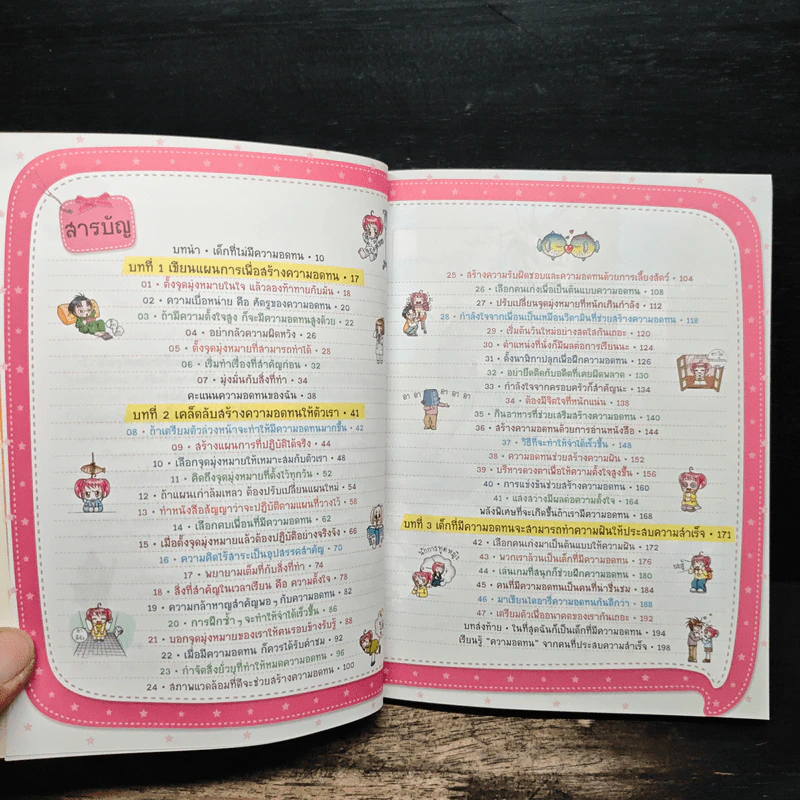 สารบัญ
บทนำ • เด็กที่ไม่มีความอดทน • 10
บทที่ 1 เขียนแผนการเพื่อสร้างความอดทน • 17
01 • ตั้งจุดมุ่งหมายในใจ แล้วลองท้าทายกับมัน • 18
02 • ความเบื่อหน่าย คือ ศัตรูของความอดทน • 20
03 • ถ้ามีความตั้งใจสูง ก็จะมีความอดทนสูงด้วย • 22
04 • อย่ากลัวความผิดหวัง • 26
05 • ตั้งจุดมุ่งหมายที่สามารถทำได้ • 28
06 • เริ่มทำเรื่องที่สำคัญก่อน • 32
07 • มุ่งมั่นกับสิ่งที่ทำ • 34
คะแนนความอดทนของฉัน • 38
บทที่ 2 เคล็ดลับสร้างความอดทนให้ตัวเรา • 41
08 • ถ้าเตรียมตัวล่วงหน้าจะทำให้มีความอดทนมากขึ้น • 42
09 • สร้างแผนการที่ปฏิบัติได้จริง • 44
10 • เลือกจุดมุ่งหมายให้เหมาะสมกับตัวเรา • 48
11 • คิดถึงจุดมุ่งหมายที่ตั้งไว้ทุกวัน • 52
12 • ถ้าแผนเก่าล้มเหลว ต้องปรับเปลี่ยนแผนใหม่ • 54
13 • ทำหนังสือสัญญาว่าจะปฏิบัติตามแผนที่วางไว้ • 58
14 • เลือกคบเพื่อนที่มีความอดทน • 62
15 • เมื่อตั้งจุดมุ่งหมายแล้วต้องปฏิบัติอย่างจริงจัง • 66
16 • ความคิดไร้สาระเป็นอุปสรรคสำคัญ • 70
17 • พยายามเต็มที่กับสิ่งที่ทำ • 74
18 • สิ่งที่สำคัญในเวลาเรียน คือ ความตั้งใจ • 78
19 • ความกล้าหาญสำคัญพอๆ กับความอดทน • 82
20 • การฝึกซ้ำๆ จะทำให้จำได้เร็วขึ้น • 86
21 • บอกจุดมุ่งหมายของเราให้คนรอบข้างรับรู้ • 88
22 • เมื่อมีความอดทน ก็ควรได้รับคำชม • 92
23 • กำจัดสิ่งยั่วยุที่ทำให้หมดความอดทน • 96
24 • สภาพแวดล้อมที่ดีจะช่วยสร้างความอดทน • 100
25 • สร้างความรับผิดชอบและความอดทนด้วยการเลี้ยงสัตว์ • 104
26 • เลือกคนเก่งมาเป็นต้นแบบความอดทน • 108
27 • ปรับเปลี่ยนจุดมุ่งหมายที่หนักเกินกำลัง • 112
28 • กำลังใจจากเพื่อนเป็นเหมือนวิตามินที่ช่วยสร้างความอดทน • 118
29 • เริ่มต้นวันใหม่อย่างสดใสกันเถอะ • 120
30 • ตำแหน่งที่นั่งก็มีผลต่อการเรียนนะ • 124
31 • ตั้งนาฬิกาปลุกเพื่อฝึกความอดทน • 126
32 • อย่ายึดติดกับอดีตที่เคยผิดพลาด • 130
33 • กำลังใจจากครอบครัวก็สำคัญนะ • 134
34 • ต้องมีจิตใจที่หนักแน่น • 138
35 • กินอาหารที่ช่วยเสริมสร้างความอดทน • 140
36 • สร้างความอดทนด้วยการอ่านหนังสือ • 144
37 • วิธีที่จะทำให้จำได้เร็วขึ้น • 148
38 • ความอดทนช่วยสร้างความฝัน • 152
39 • บริหารดวงตาเพื่อให้ความตั้งใจสูงขึ้น • 156
40 • การแข่งขันช่วยสร้างความอดทน • 160
41 • แสงสว่างมีผลต่อความตั้งใจ • 164
พลังพิเศษที่จะเกิดขึ้นถ้าเรามีความอดทน • 168
บทที่ 3 เด็กที่มีความอดทนจะสามารถทำความฝันให้ประสบความสำเร็จ • 171
42 • เลือกคนเก่งมาเป็นต้นแบบให้ความฝัน • 172
43 • พวกเราล้วนเป็นเด็กที่มีความอดทน • 176
44 • เล่นเกมที่สนุกก็ช่วยฝึกความอดทน • 180
45 • คนที่มีความอดทนเป็นคนที่น่าชื่นชม • 184
46 • มาเขียนไดอารี่ความอดทนกันดีกว่า • 188
47 • เตรียมตัวเพื่ออนาคตของเรากันเถอะ • 192
บทส่งท้าย • ในที่สุดฉันก็เป็นเด็กที่มีความอดทน • 194
เรียนรู้ "ความอดทน" จากคนที่ประสบความสำเร็จ • 198
อา อา อา อา อา